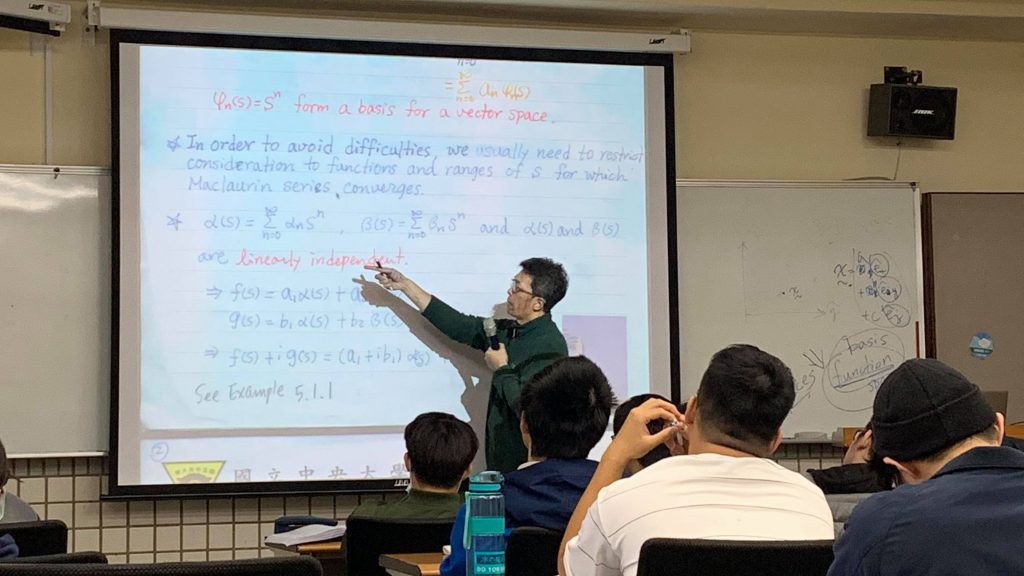 n=0
= ∞Σn=0 an φn(s)
φn(s)=Sⁿ form a basis for a vector space.
* In order to avoid difficulties, we usually need to restrict
consideration to functions and ranges of s for which
Maclaurin series converges.
* α(s) = ∞Σn=0 αn Sⁿ , β(s) = ∞Σn=0 βn Sⁿ and α(s) and β(s)
are linearly independent.
⇒ f(s) = a₁ α(s) +
g(s) = b₁ α(s) + b₂ β(s)
⇒ f(s) + i g(s) = (a₁ + i b₁) α(s)
See Example 5.1.1
②
國立中央大學
basis
function